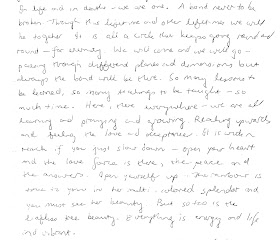 In life and in death - we are one. A bond never to be
broken. Though this lifetime and other lifetimes we will
be together. It is all a circle that keeps going round and
round - for eternity. We will come and we will go -
passing through different planes and dimensions but
always the bond will be there. So many lessons to
be learned, so many teachings to be taught - so
much time. Here, there everywhere - we are all
learning and growing and growing. Reaching upwards
and feeling the love and acceptance. It is within
reach if you just slow down - open your heart
and the love force is there, the peace and
the answers. Open yourself up - The rainbow is
there in all its multi-colored splendor and
you must see her beauty. But so too is the
leafless tree beauty. Everything is energy and life
is vibrant.